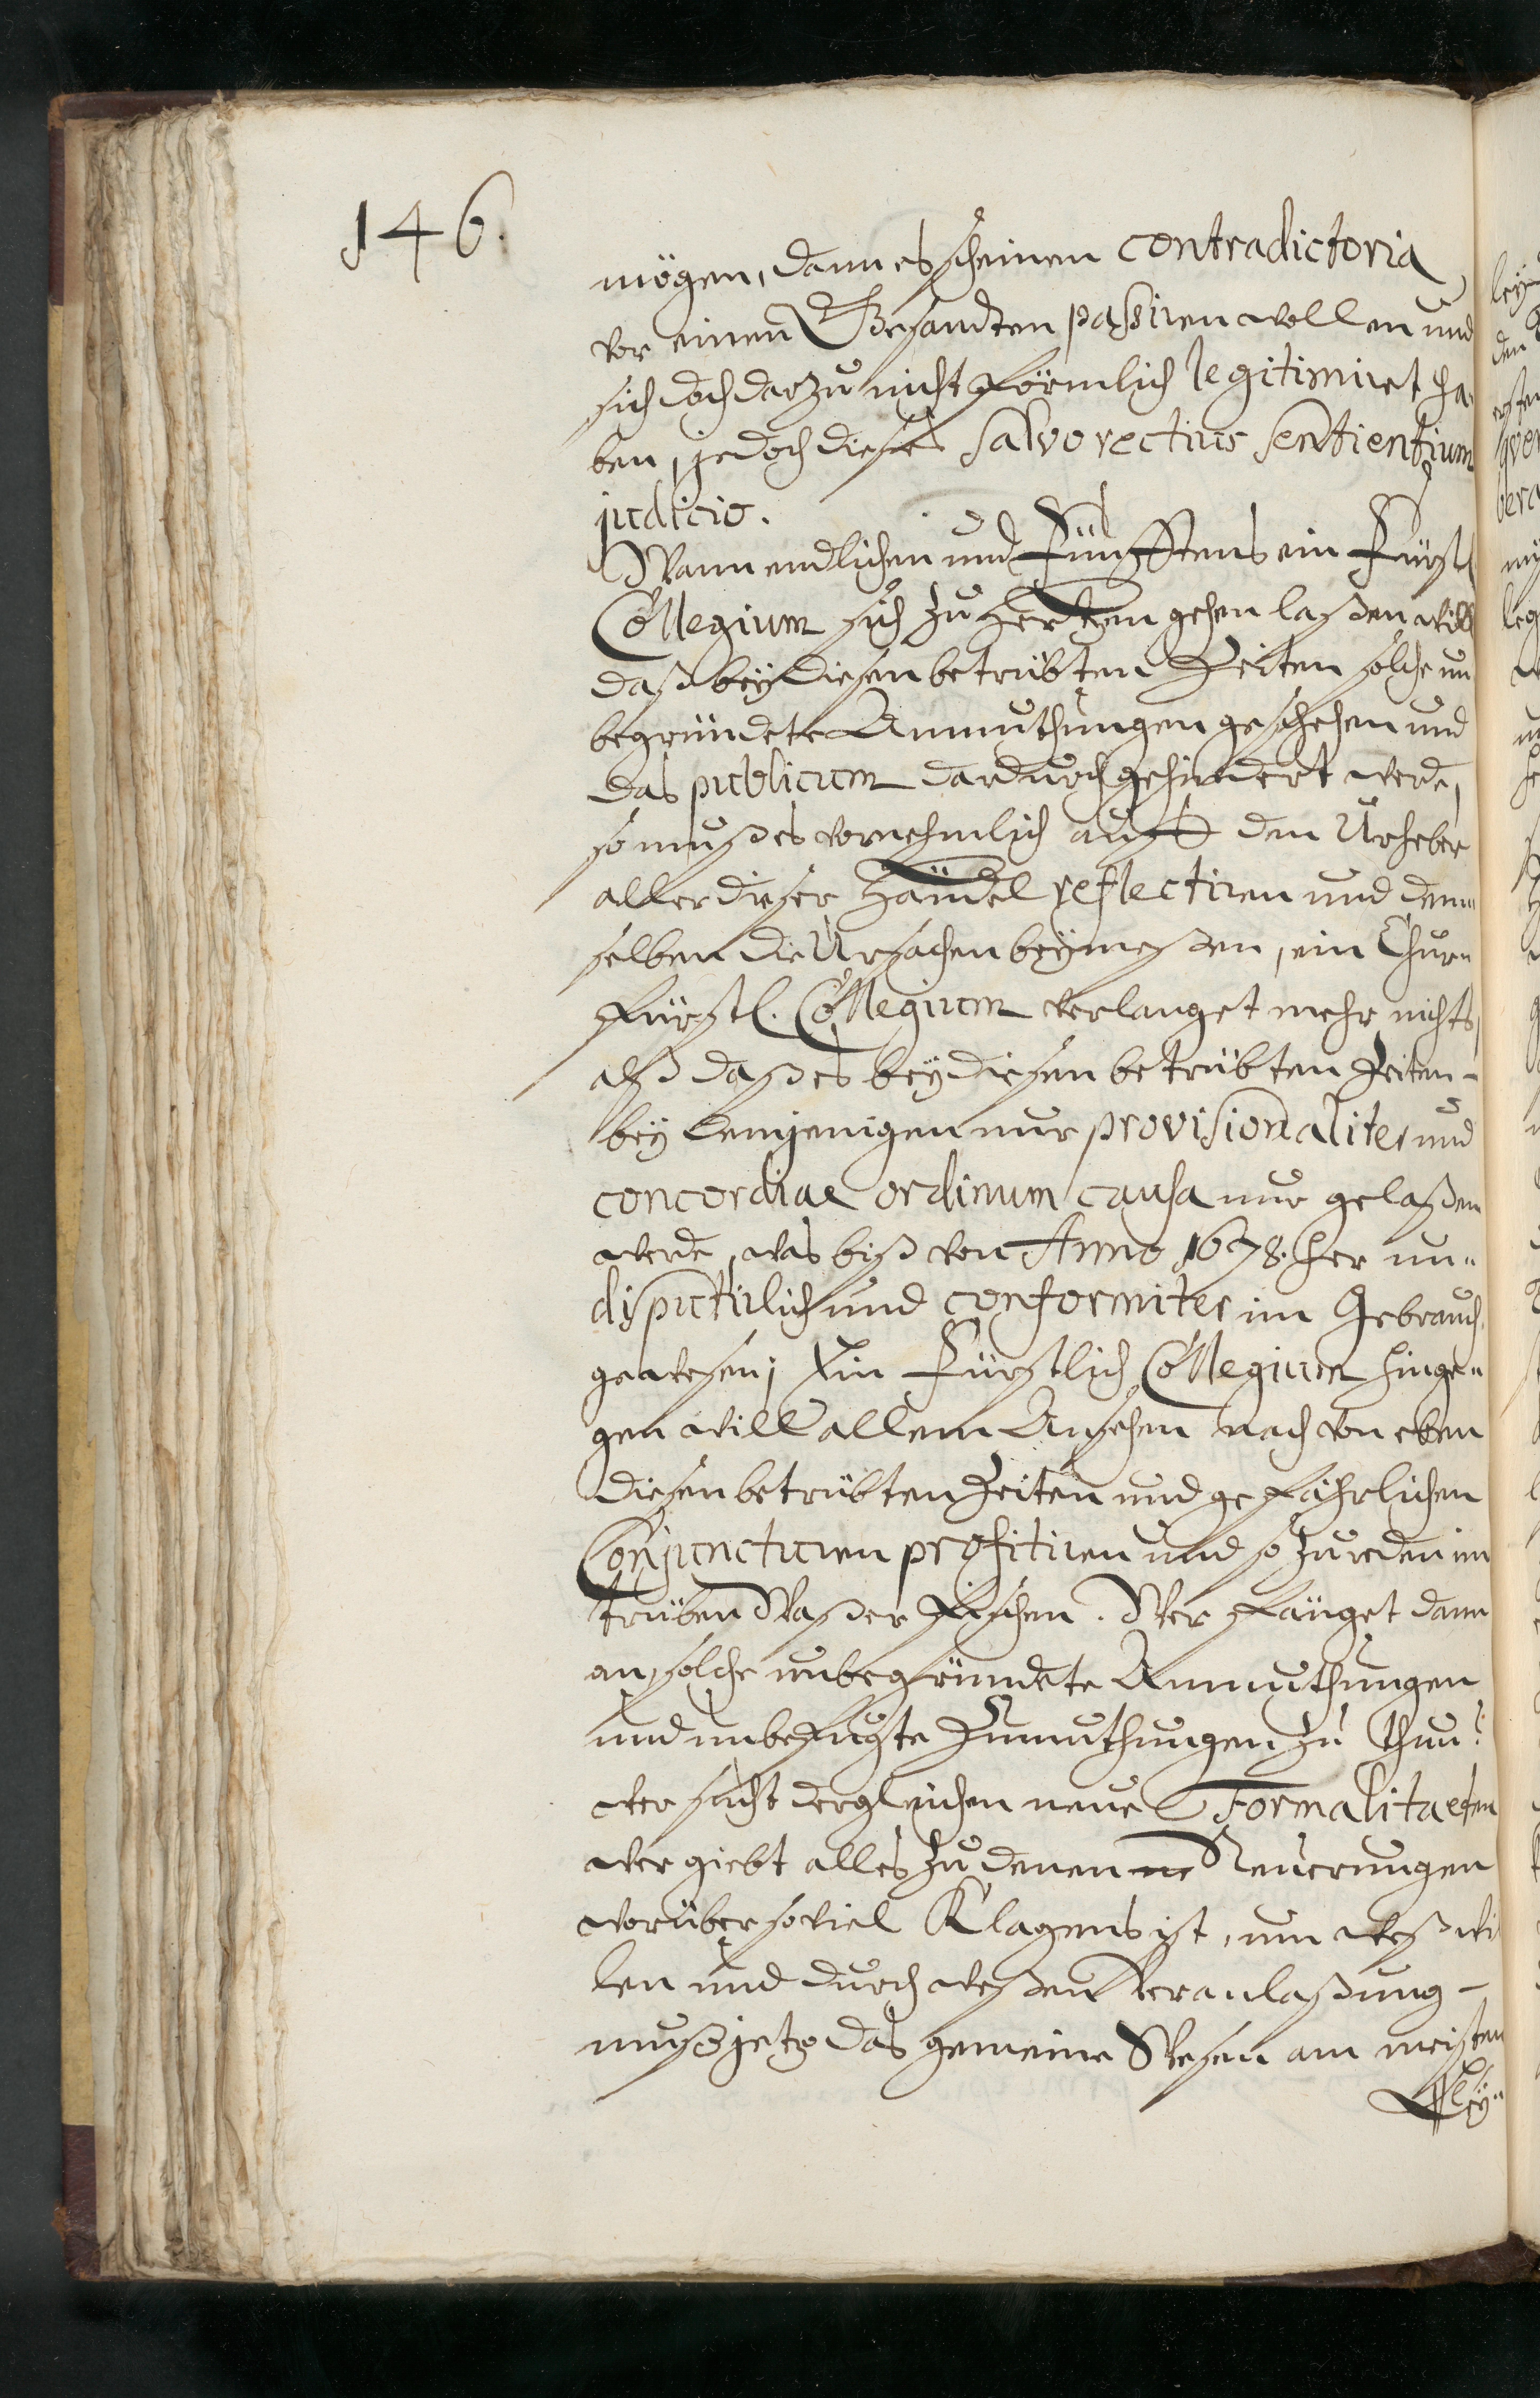 146.
mögen, dann es scheinen contradictoria
vor einen Gesandten passiren wollen und
sich doch darzu nicht förmlich legitimiret ha„
ben, jedoch dieses salvo rectius sentientium
judicio.
Wann endlichen und Fünfftens ein Fürstl
Collegium sich zu Hertzen gehen laßen will
daß bey diesen betrübten Zeiten solche un
begründete Anmuthungen geschehen und
das publicum dardurch gehindert werde,
so muß es vornehmlich auff den Urheber
aller dieser Händel reflectiren und dem„
selben die Ursachen beymeßen, ein Chur„
fürstl. Collegium verlanget mehr nichts,
alß daß es bey diesen betrübten Zeiten -
bey demjenigen nur provisionaliter und
concordiae ordinum causa nur gelaßen
werde, was biß von Anno 1678. her un„
disputirlich und conformiter im Gebrauch
gewesen; Ein Fürstlich Collegium hinge„
gen will allem Ansehen nach von eben
diesen betrübten Zeiten und gefährlichen
Conjuncturen profitiren und so zu reden im
trüben Waßer fischen. Wer fänget dann
an, solche unbegründete Anmuthungen
und unbefugte Zumuthungen zu thun?
wer sucht dergleichen neue Formalitaeten
wer giebt alles zu denen ne Neuerungen
worüber so viel Klagens ist, um weß wi
len und durch weßen Veranlaßung -
muß jetzo das gemeine Wesen am meisten